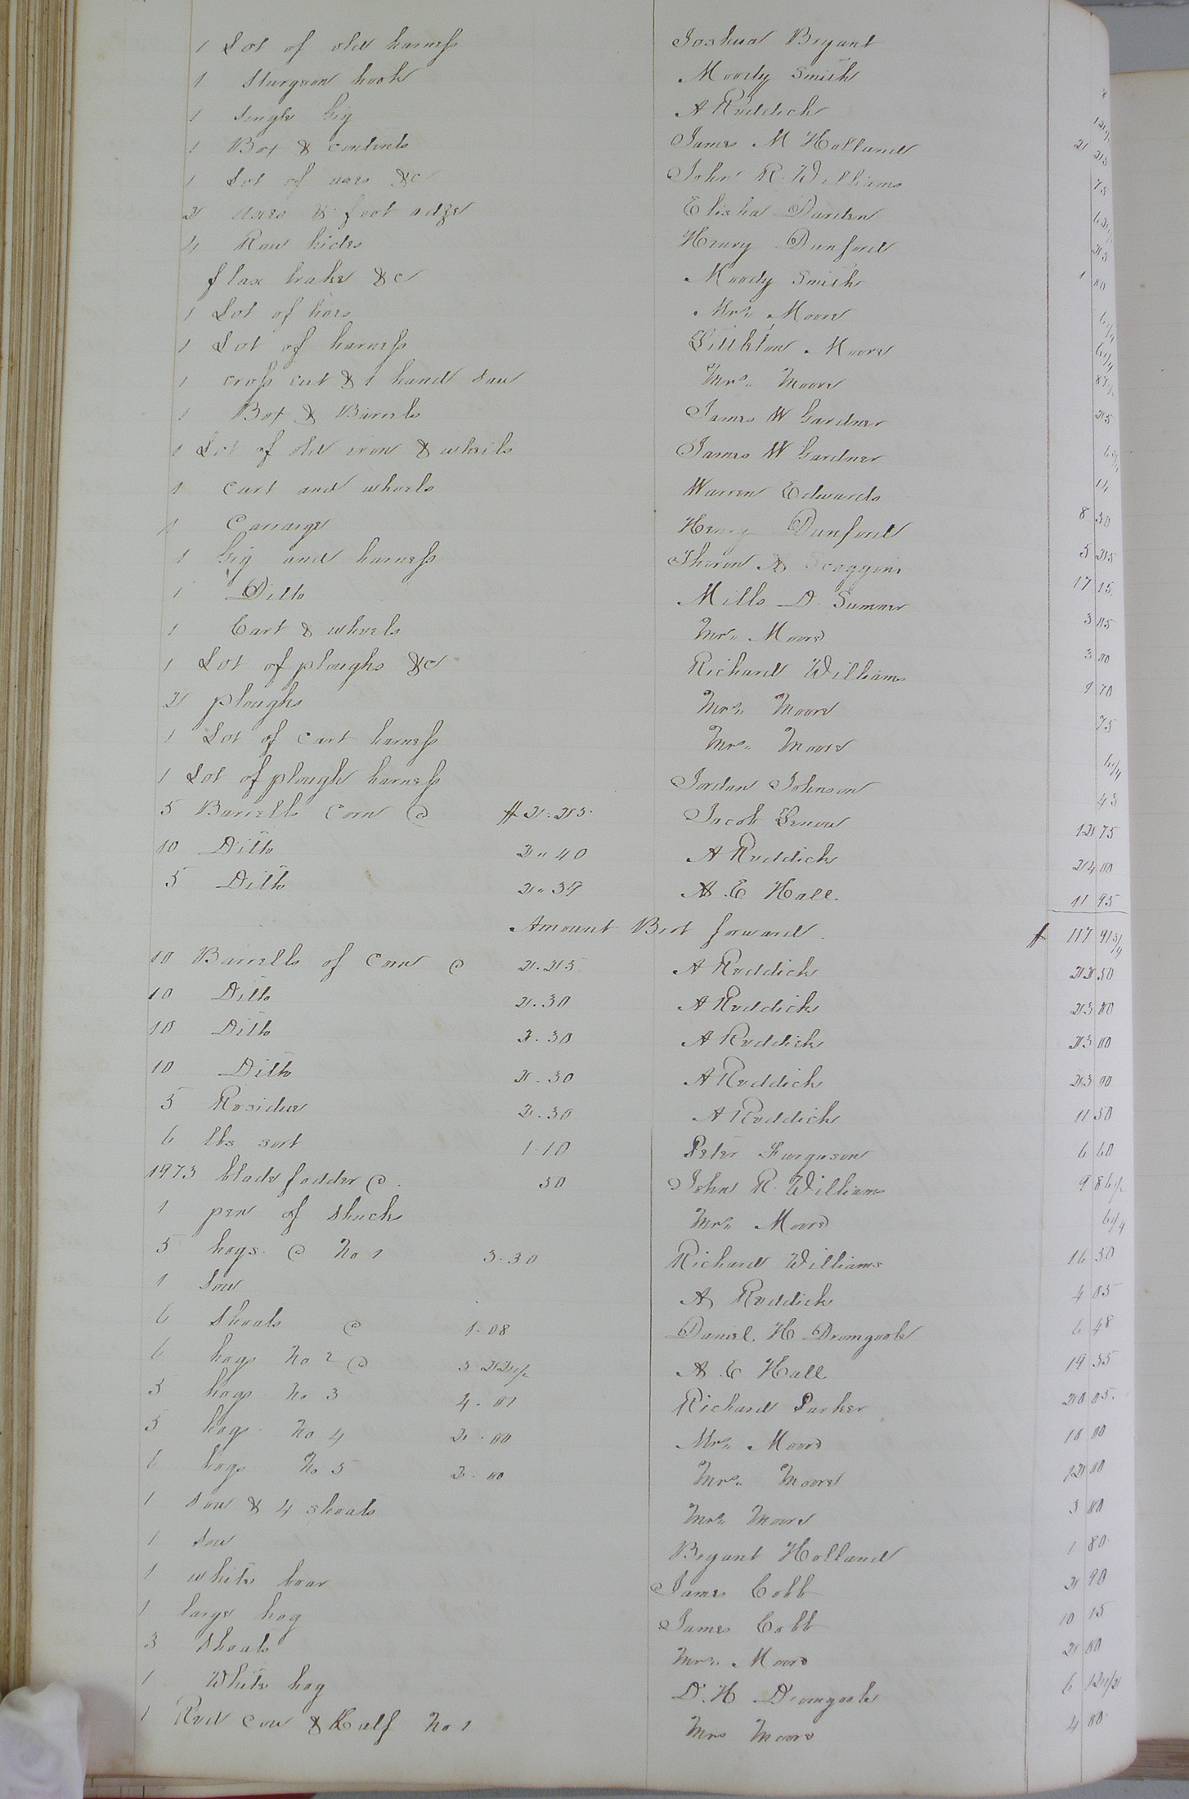 1 Lot of old harness Joshua Bryant
1 Sturgeon hook Moody Smith
1 Single Gig A Riddick 12 1/2
1 Box & contents James M Holland 2 25
1 Lot of &c John R. Williams 75
2 axes & foot adze Elisha Darden 62 1/2
4 Raw hides Henry Dunford 25
flax brake &c Moody Smith 1 00
1 Lot of hoes Mrs. Moore 6 1/4
1 Lot of harness Littleton Moore 6 1/4
1 cross cut & 1 hand saw Mrs. Moore
1 Box & Barrels James W Gardner 25
1 Lot of old iron & wheels James W Gardner
1 cart and wheels Warren Edwards
1 Carraige Henry Dunford 8 50
1 Gig and harness A Scoggins 5 25
1 Ditto Mills D. Sumner 17 15
1 Cart & wheels Mrs. Moore 3 05
1 Lot of ploughs &c Richard Williams 3 00
2 ploughs Mrs. Moore 70
1 Lot of Cart harness Mrs. Moore 75
1 Lot of plough harness Jordan Johnson
5 Barrells Corn @ $2.25 Jacob
10 Ditto 2.40 A Riddick 24 00
5 Ditto 2.39 A. E Hall. 11 95
Amount Brot forward $ 117
10 Barrells of Corn @ 2.25 A Riddick 22 50
10 Ditto 2.30 A Riddick 23 00
10 Ditto 2.30 A Riddick 23 00
10 Ditto 2.30 A Riddick 23 00
5 Residue 2.30 A Riddick 11 50
6 lbs 1.10 Peter Furguson 6 60
1973 blade fodder @ 50 John R. Williams 9 86 1/2
1 pen of Shucks Mrs. Moore 6 1/4
5 hogs @ No 1 3.30 Richard Williams 16 50
1 Sow A Riddick 4 05
6 Shoats @ 1.08 Daniel. H Dromgoole 6 48
6 hogs No 2 @ 3 22 1/2 A E Hall 19 35
5 hogs No 3 4.01 Richard Parker 20 05
5 hogs No 4 2.00 Mrs. Moore 10 00
6 hogs No 5 2.00 Mrs. Moore 12 00
1 Sow & 4 shoats Mrs. Moore 3 00
1 Sow Bryant Holland 1 80
1 white boar James Cobb 2 90
1 large hog James Cobb 10 15
3 Shoats Mrs. Moore 2 00
1 White hog D. H Dromgoole 6 12 1/2
1 Red Cow & Calf No 1 Mrs Moore 4 00